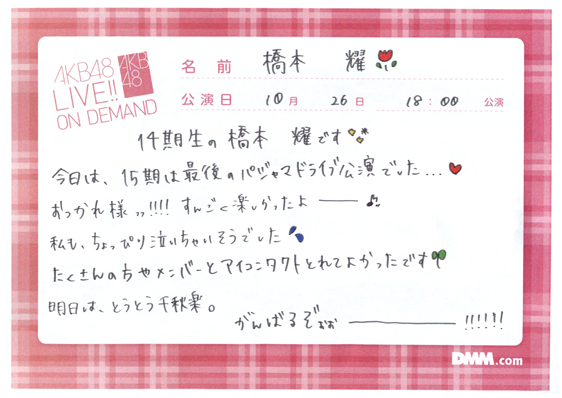 AKB48
LIVE!!
ON DEMAND
AKB
48
名前 橋本 耀
公演日 10月 26日 18:00 公演
14期生の橋本 耀です
今日は、15期は最後のパジャマドライブ公演でした...
おつかれ様ッッ!!!! すんごく楽しかったよ――
私も、ちょっぴり泣いちゃいそうでした
たくさんのちやメンバーとアイコンタクトとれてよかったです
明日は、とうとう千秋楽。
がんばるぞぉぉ――――!!!!!!
DMM.com